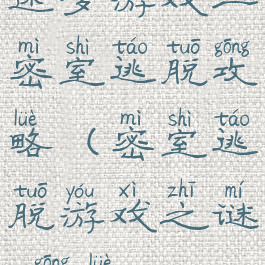 谜梦游戏二
mì shì táo tuō gōng
密室逃脱攻
lüè mì shì táo
略（密室逃
tuō yóu xì zhī mí
脱游戏之谜
gōng lüè